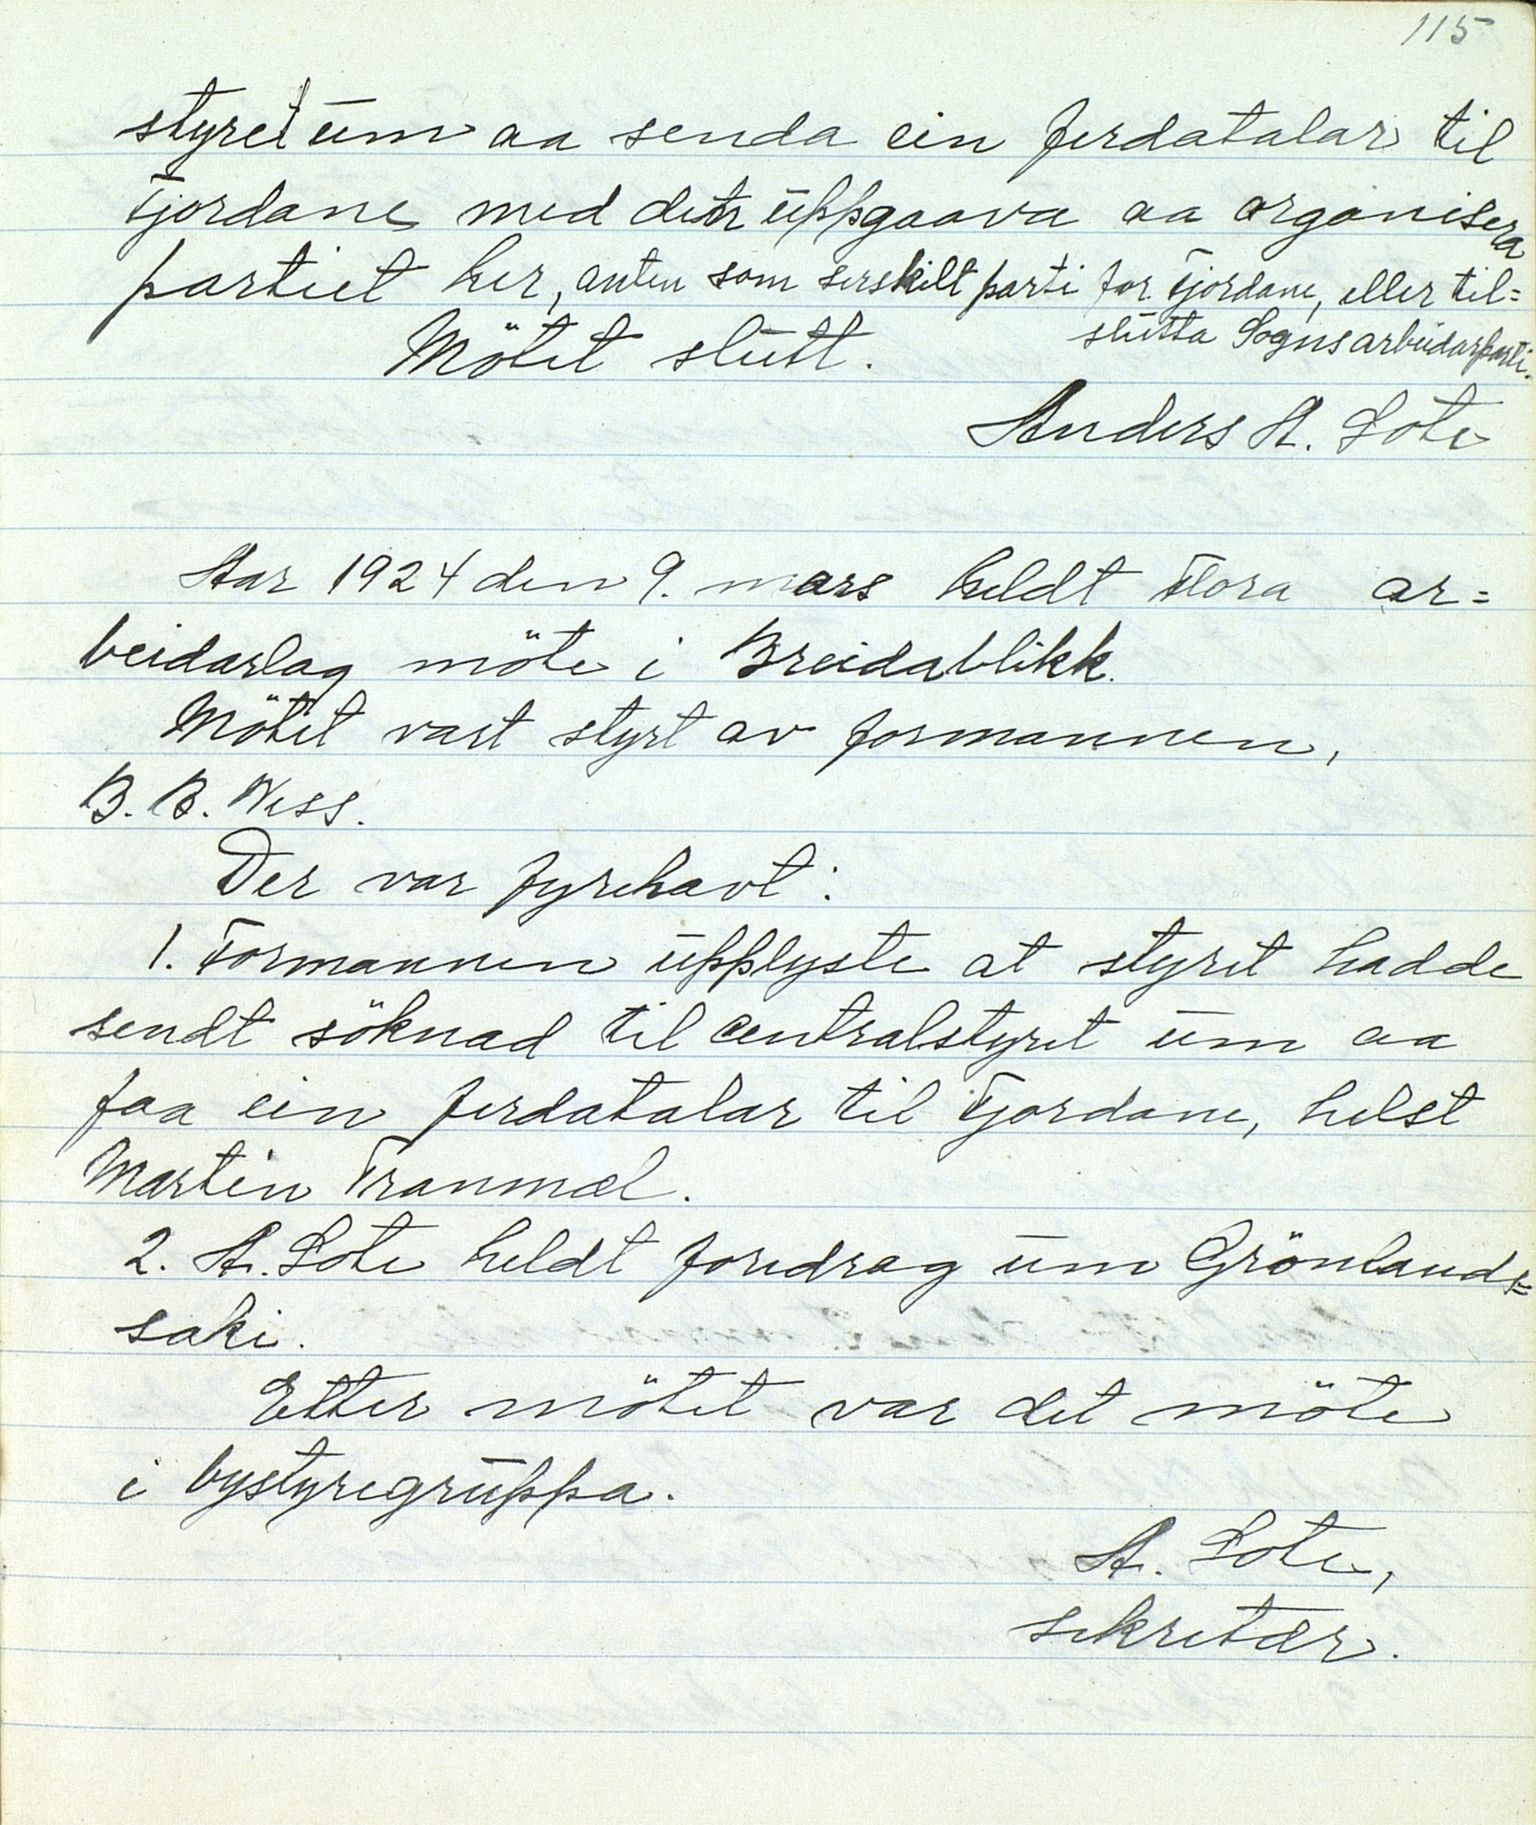 115
styret um aa senda ein ferdatalar til
Fjordane med den uppgaava aa organisera
partiet her, anten som serskilt parti for Fjordane, eller til=
slutta Sogns arbeidarparti.
Mötet slutt.
Anders A. Lote
Aar 1924 den 9. mars heldt Flora ar=
beidarlag möte i Breidablikk.
Mötet vart styrt av formannen,
B. B. Ness.
Der var fyrehavt:
1. Formannen upplyste at styret hadde
sendt söknad til centralstyret um aa
faa ein ferdatalar til Fjordane, helst
Martin Tranmæl.
2. A. Lote heldt foredrag um Grönlands=
saki.
Etter mötet var det möte
i bystyregruppa.
A. Lote,
sekretær.